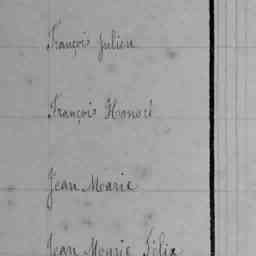 François Julien
François Honoré
Jean Marie
Jean Marie Félix